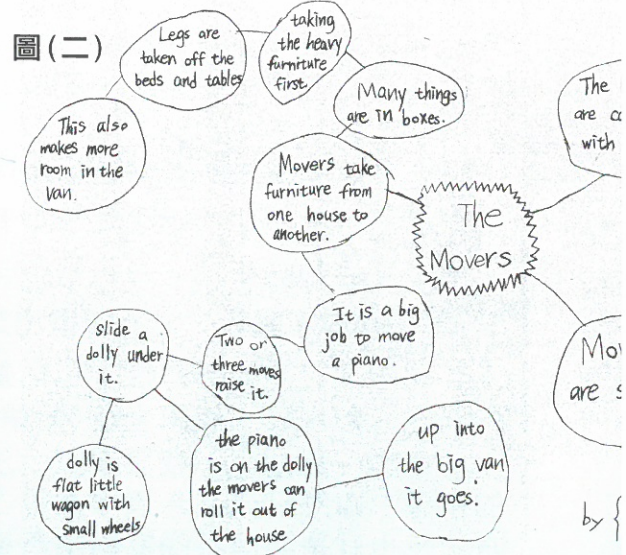 圖(二)
Legs are
taken off the
beds and tables
taking
the heavy
furniture
first.
Many things
are in boxes.
This also
makes more
room in the
van.
Movers take
furniture from
one house to
another.
The
Movers
The
are
with
It is a big
job to move
a piano.
Two or
three moves
raise it.
slide a
dolly under
it.
dolly is
flat little
wagon with
small wheels
the piano
is on the dolly
the movers can
roll it out of
the house
up into
the big van
it goes.
are
by {